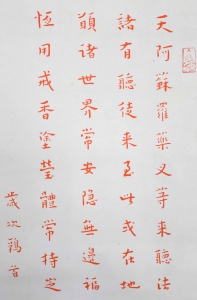 天阿蘇羅藥叉等来聽法
諸有聽徒来至此或在地
願諸世界常安隐無邊福
恆用戒香塗瑩體常持芝
歲次鶉首